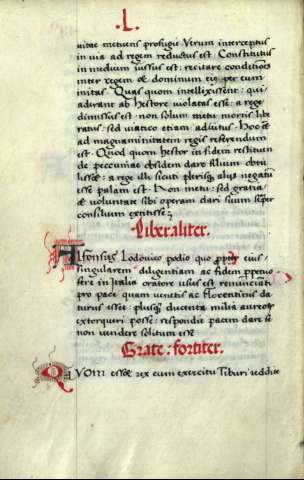 .L.
uitae metuens profugit Verum interceptus
in via ad regem reductus est: Constitutus
in medium iussus est: recitare conditiones
inter regem et dominum eius per cum
initas Quas quom intellexissent: qui
aderant ab hestore violatas esse: a rege
dimissus est: non solum metu mortis libe
ratus: sed viatico etiam adiutus: Hoc
ad magnanimitatem regis referendum
est: Quod quom hestor in fidem restituen
de pecuniae obsidem dare filium obtu
lisset: a rege illi sicuti plerisq alias negatum
esse palam est: Non metu: sed gratia
et voluntate sibi operam dari suum semper
consilium extitisse
Liberaliter.
Alfonsus Lodovico podio quo propter eius
singularem diligentiam ac fidem
in Italia oratore usus est renuncianti
pro pace quam venetis ac florentinis da
turus esset: plusq ducenta milia aureos
extorqueri posse: respondit pacem dare se
non vendere solitum esse
Grate: fortiter.
QVOM esset rex cum exercitu Tiburi